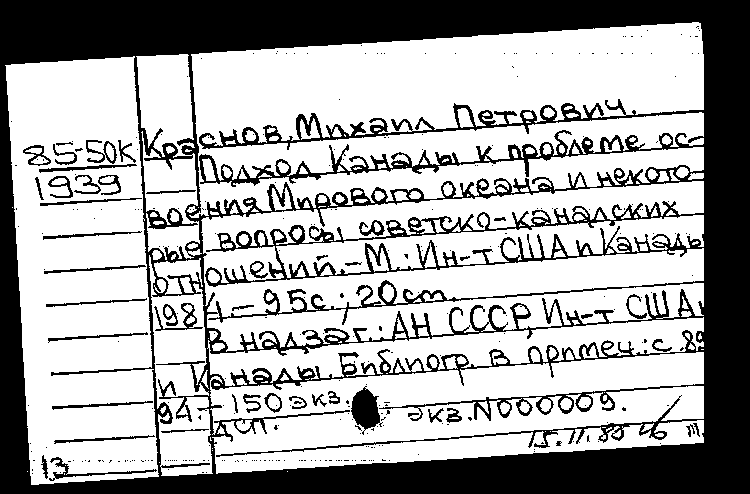 Краснов, Михаил Петрович.
85-50К
1939
Подход Канады к проблеме ос-
воения Мирового океана и некото-
рые вопросы советско-канадских
отношений.-М.: Ин-т США и Канады
1984.- 95с.; 20см.
В надзаг.: АН СССР, Ин-т США и
и Канады. Библиогр. в примеч.: с. 89
94.- 150 экз. экз. N000009.
ДСП.
15.11.85
13